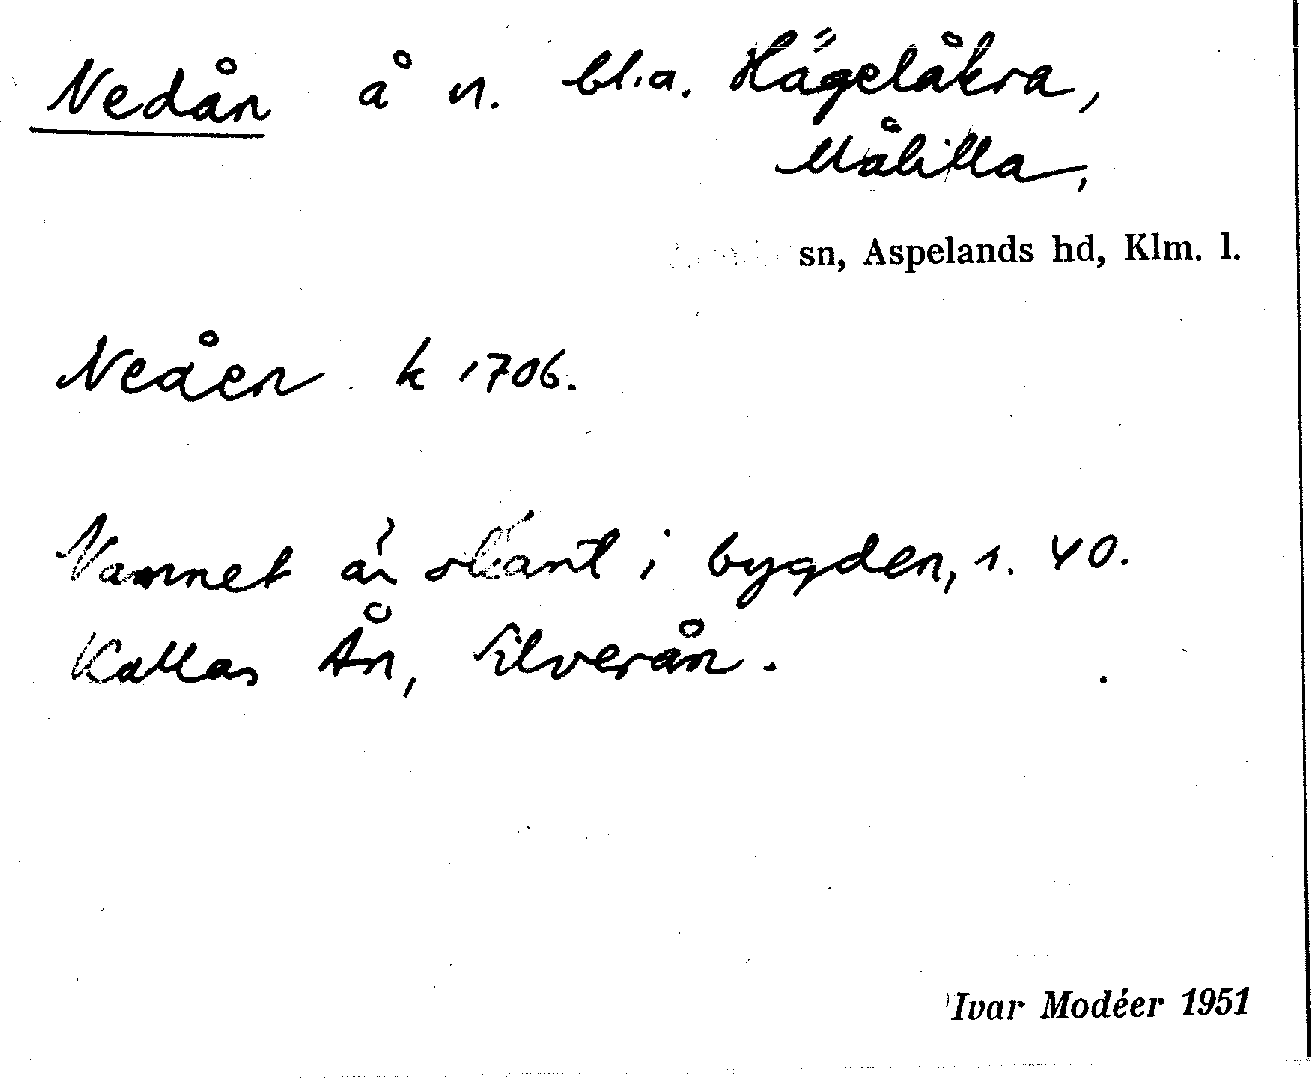 Nedån å n. bl.a. Hägelåkra,
Målilla,
sn, Aspelands hd, Klm. l.
Nedåen k 1706.
Namnet är okänt i bygden, s. 40.
Kallas Ån, Silverån.
Ivar Modéer 1951